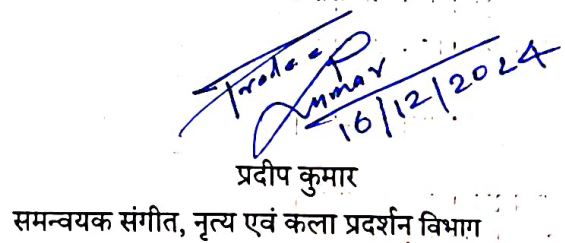 Pradeep
Kumar
16/12/2024
प्रदीप कुमार
समन्वयक संगीत, नृत्य एवं कला प्रदर्शन विभाग